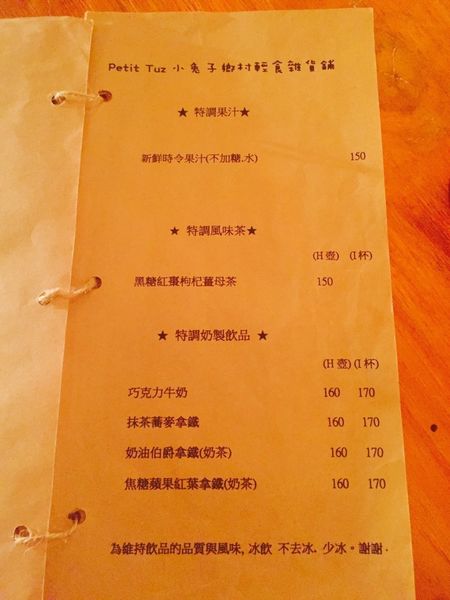 Petit Tuz 小兔子鄉村輕食雜貨鋪
★ 特調果汁★
新鮮時令果汁(不加糖.水) 150
★ 特調風味茶★
(H 壺) (I 杯)
黑糖紅棗枸杞薑母茶 150
★ 特調奶製飲品 ★
(H 壺) (I 杯)
巧克力牛奶 160 170
抹茶蕎麥拿鐵 160 170
奶油伯爵拿鐵(奶茶) 160 170
焦糖蘋果紅葉拿鐵(奶茶) 160 170
為維持飲品的品質與風味, 冰飲 不去冰. 少冰。謝謝.